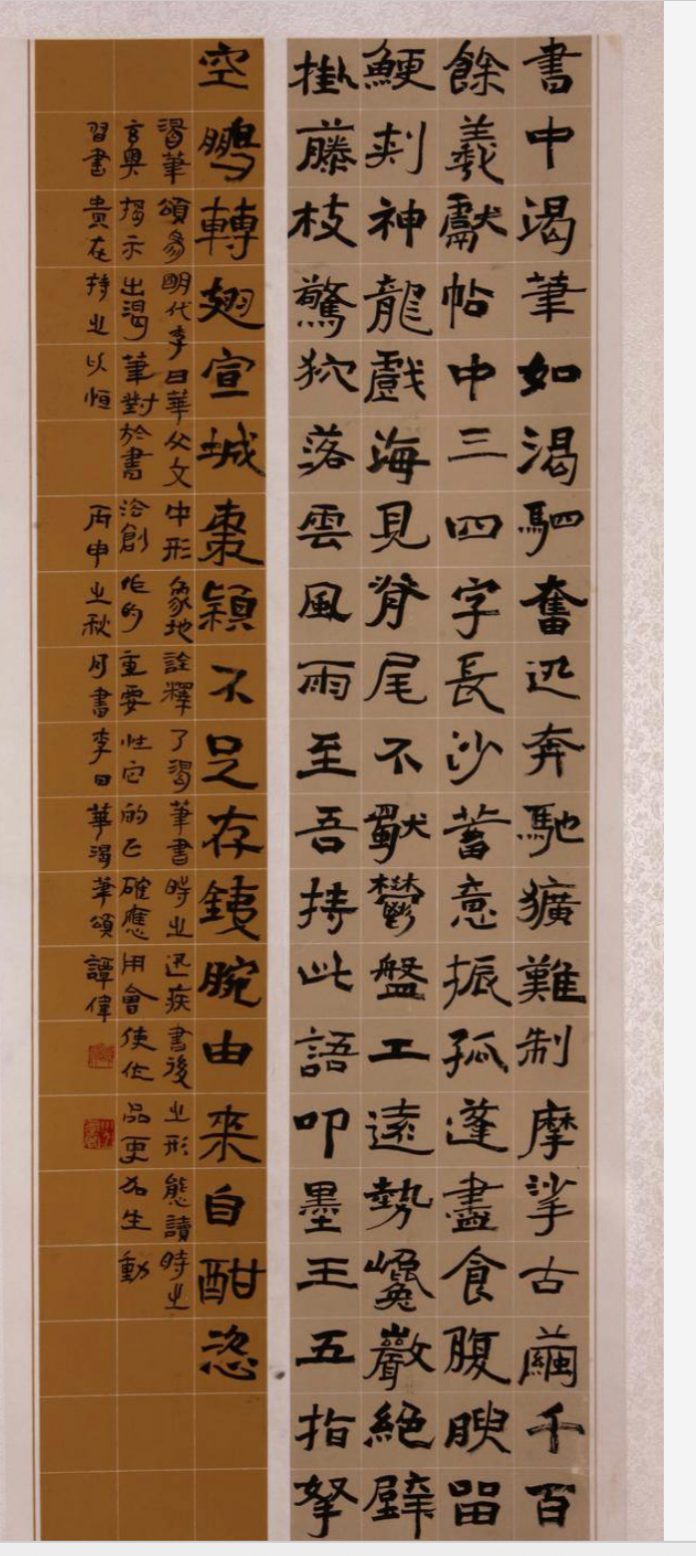 書中渴筆如渴駟奮迅奔馳獷難制摩挲古繭千百
餘羲獻帖中三四字長沙蓄意振孤蓬盡食腹腴留
鯁刺神龍戲海見脊尾不獨鬱盤工遠勢巉巖絕壁
掛藤枝驚狖落雲風雨至吾持此語叩墨王五指拏
空鵬轉翅宣城棗穎不足存鐵腕由來自酣恣
渴筆頌爲明代李日華父文中形象地詮釋了渴筆書時之迅疾書後之形態讀時之
玄奧揭示出渴筆對於書法創作的重要性它的正確應用會使作品更爲生動
習書貴在持之以恒 丙申之秋月書李日華渴筆頌譚偉